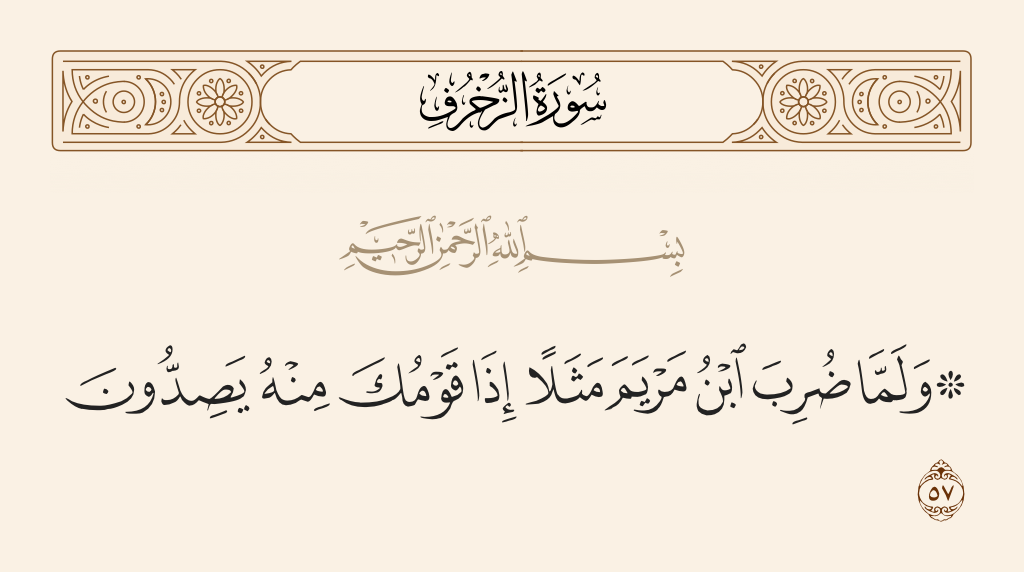 سُورَةُ الزُّخْرُفِ
بِسْمِ ٱللَّهِ ٱلرَّحْمَٰنِ ٱلرَّحِيمِ
۞ وَلَمَّا ضُرِبَ ٱبْنُ مَرْيَمَ مَثَلًا إِذَا قَوْمُكَ مِنْهُ يَصِدُّونَ
٥٧